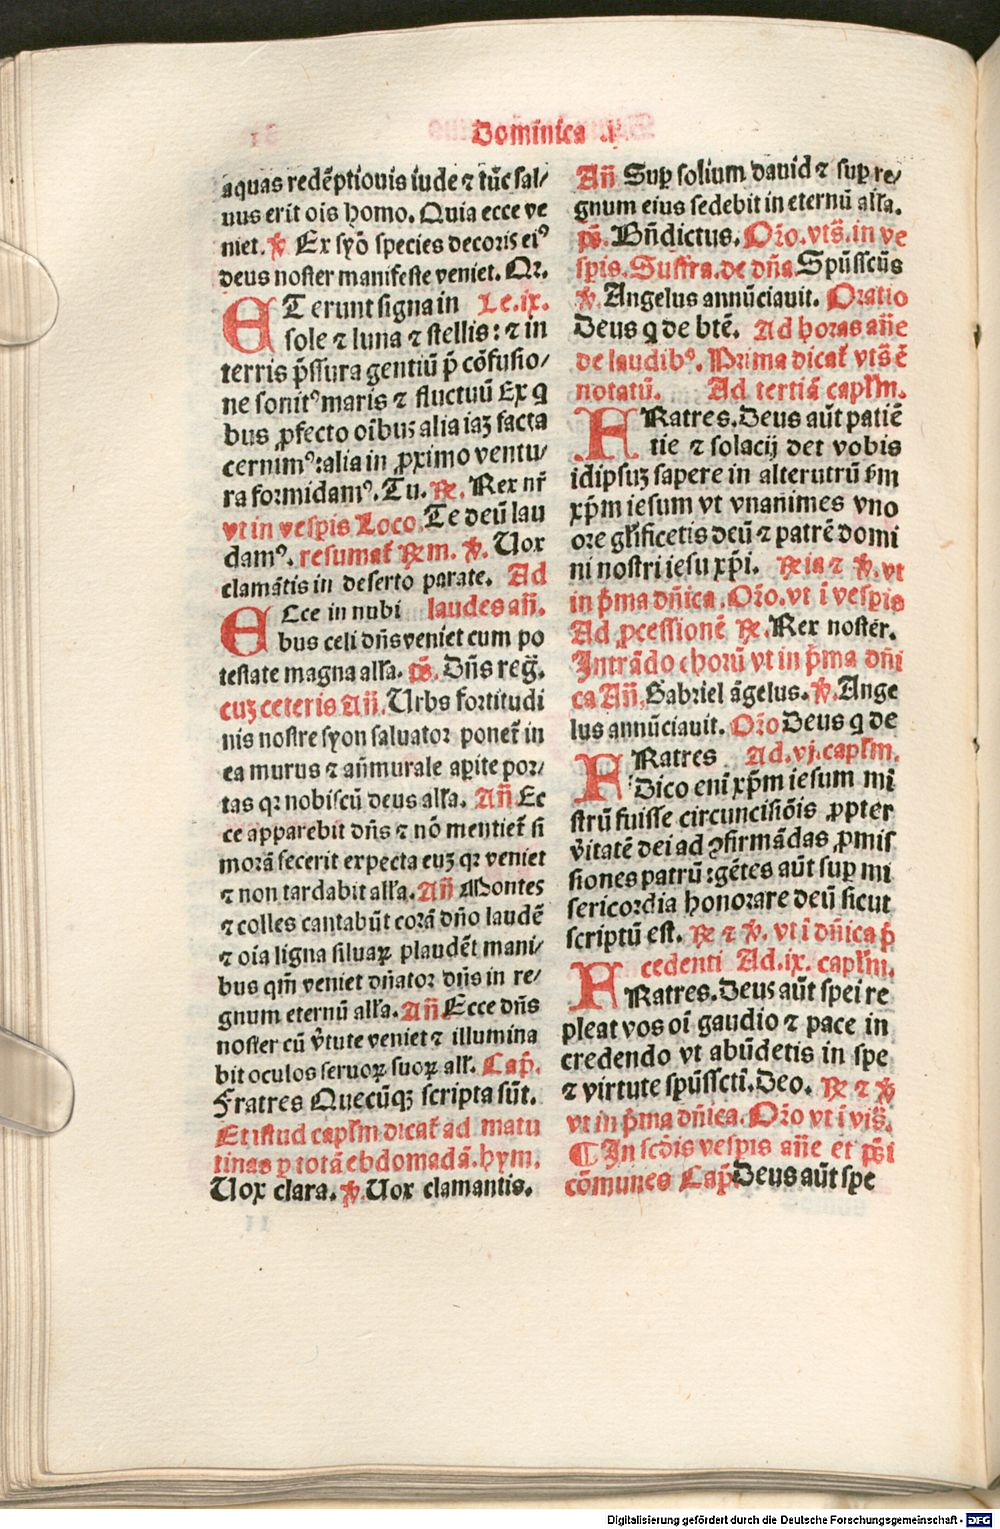 Dominica .ij.
aquas redēptiouis iude ⁊ tūc sal/
uus erit oīs homo. Quia ecce ve
niet. ℣ Ex syō species decoris ei⁹
deus noster manifeste veniet. Qr.
ET erunt signa in Le.ix.
sole ⁊ luna ⁊ stellis: ⁊ in
terris p̄ssura gentiū p̄ cōfusio/
ne sonit⁹ maris ⁊ fluctuū Ex q
bus ꝓfecto oībus alia iaꝫ facta
cernim⁹: alia in ꝓximo ventu/
ra formidam⁹. Tu. ℞. Rex nr̄
vt in vesꝑis Loco. Te deū lau
dam⁹. resumat̄ ℞m. ℣. Uox
clamātis in deserto parate. Ad
ECce in nubi laudes an̄.
bus celi dn̄s veniet cum po
testate magna alla. ps̄. Dn̄s reḡ.
cuꝫ ceteris An̄. Urbs fortitudi
nis nostre syon saluator ponet̄ in
ea murus ⁊ an̄murale aꝑite por/
tas qꝛ nobiscū deus alla. An̄ Ec
ce apparebit dn̄s ⁊ nō mentiet̄ si
morā fecerit expecta euꝫ qꝛ veniet
⁊ non tardabit alla. An̄ Montes
⁊ colles cantabūt corā dn̄o laudē
⁊ oīa ligna siluaꝝ plaudēt mani/
bus qm̄ veniet dn̄ator dn̄s in re/
gnum eternū alla. An̄ Ecce dn̄s
noster cū v̄tute veniet ⁊ illumina
bit oculos seruoꝝ suoꝝ all̄. Cap̄.
Fratres Quecūqꝫ scripta sūt.
Et istud caplm̄ dicat̄ ad matu
tinas ꝑ totā ebdomadā. hym.
Uox clara. ℣. Uox clamantis.
An̄ Suꝑ solium dauid ⁊ suꝑ re/
gnum eius sedebit in eternū alla.
ps̄. Bn̄dictus. Oro. vts̄. in ve
sꝑis. Suffra. de dn̄a. Spūsscūs
℣. Angelus annūciauit. Oratio
Deus q de btē. Ad horas an̄e
de laudib⁹. Prima dicat̄ vts̄ ē
notatū. Ad tertiā caplm̄.
FRatres. Deus aūt patiē
tie ⁊ solacij det vobis
idipsuꝫ sapere in alterutrū s̄m
xp̄m iesum vt vnanimes vno
ore glīficetis deū ⁊ patrē domi
ni nostri iesu xp̄i. ℞ia ⁊ ℣. vt
in p̄ma dn̄ica. Oro. vt ī vesꝑis
Ad ꝓcessionē ℞. Rex noster.
Intrādo chorū vt in p̄ma dn̄i
ca An̄. Gabriel āgelus. ℣. Ange
lus annūciauit. Oro Deus q de
FRatres Ad .vj. caplm̄.
Dico enī xp̄m iesum mi
strū fuisse circuncisiōis ꝓpter
v̄itatē dei ad ꝯfirmādas ꝓmis
siones patrū: gētes aūt suꝑ mi
sericordia honorare deū sicut
scriptū est. ℞ ⁊ ℣. vt ī dn̄ica p̄
cedenti Ad .ix. caplm̄.
FRatres. Deus aūt spei re
pleat vos oī gaudio ⁊ pace in
credendo vt abūdetis in spe
⁊ virtute spūsscti. Deo. ℞ ⁊ ℣
vt in p̄ma dn̄ica. Oro vt ī vis̄.
¶ In scdīs vesꝑis an̄e et ps̄i
cōmunes Cap̄. Deus aūt spe
Digitalisierung gefördert durch die Deutsche Forschungsgemeinschaft - DFG